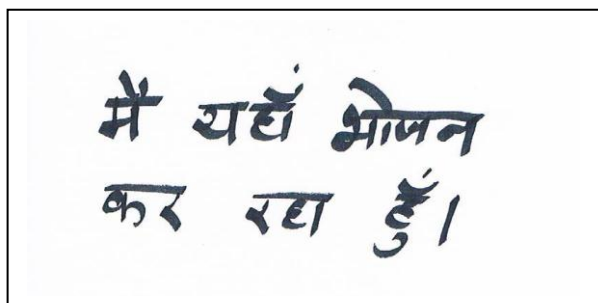 मैं यहाँ भोजन
कर रहा हुँ।